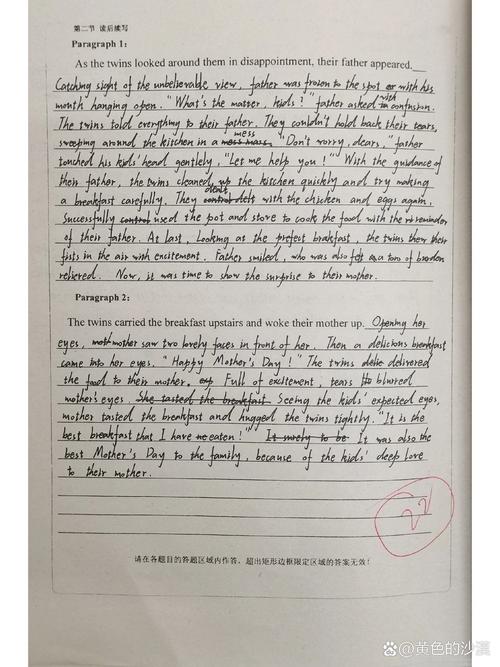 第二节 读后续写
Paragraph 1:
As the twins looked around them in disappointment, their father appeared.
Catching sight of the unbelievable view, father was frozen to the spot with his
mouth hanging open. "What's the matter, kids?" father asked with confusion.
The twins told everything to their father. They couldn't hold back their tears,
sweeping around the kitchen in a mess. "Don't worry, dears," father
touched his kids' head gentley, "Let me help you!" With the guidance of
their father, the twins cleaned up the kitchen quickly and try making
a breakfast carefully. They dealt with the chicken and eggs again.
Successfully used the pot and store to cook the food with the reminder
of their father. At last, Looking at the prefect brakfast, the twins threw their
fists in the air with excitement. Father smiled, who was also felt a ton of broden
relieved. Now, it was time to show the surprise to their mother.
Paragraph 2:
The twins carried the breakfast upstairs and woke their mother up. Opening her
eyes, mother saw two lovely faces in front of her. Then a delicious breakfast
came into her eyes. "Happy Mother's Day!" The twins delivered
the food to their mother. Full of excitement, tears blurred
mother's eyes. She tasted the breakfast Seeing the kids' expected eyes,
mother tasted the breakfast and hugged the twins tightly. "It is the
best breakfast that I have eaten!" It surely to be It was also the
best Mother's Day to the family, because of the kids' deep love
to their mother.
22
请在各题目的答题区域内作答，超出矩形边框限定区域的答案无效！
黄色的沙漠